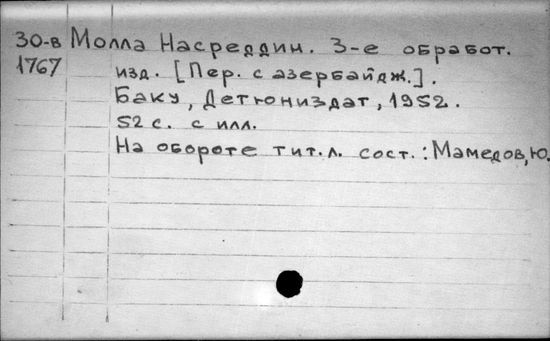 30-в Молла Насреддин. 3-е обработ.
1767 изд. [Пер. с азербайдж.].
Баку, Детюниздат, 1952.
52 с. с илл.
На обороте тит.л. сост.: Мамедов, Ю.